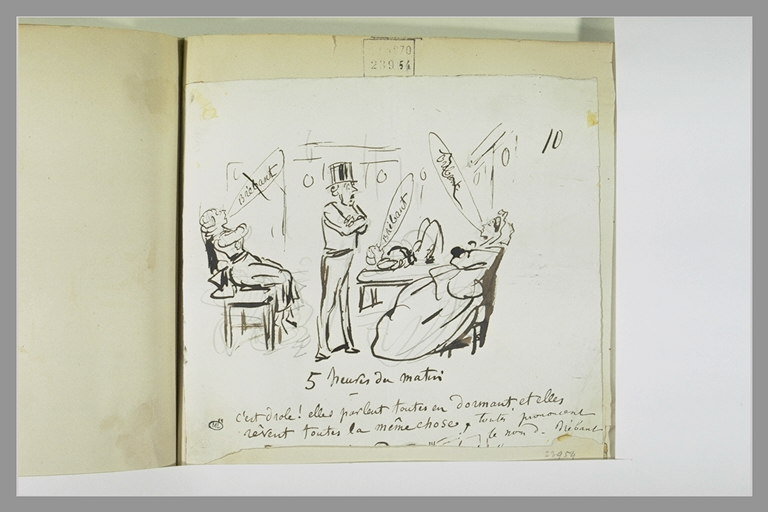 23954
10
Brébant
Brébant
Brébant
5 heures du matin
c'est drole! elles parlent toutes en dormant et elles
rêvent toutes la même chose, toutes prononcent
le nom d. Brébant
23954